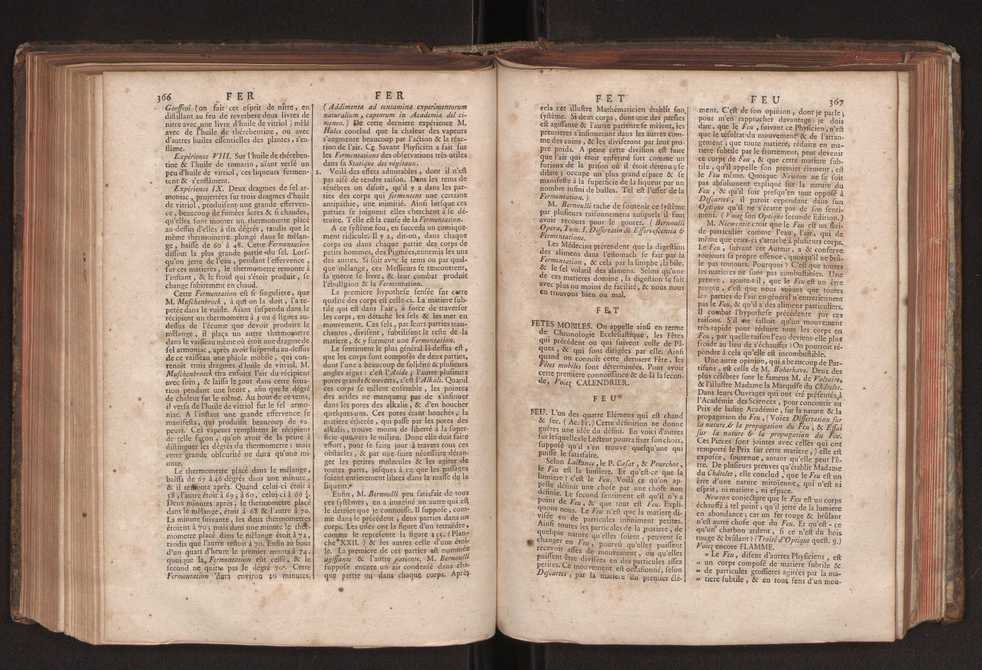 366 FER
Geoffroi (on fait cet esprit de nître, en
distillant au feu de reverbere deux livres de
nitre avec une livre d'huile de vitriol) mêlé
avec de l'huile de thérebentine, ou avec
d'autres huiles essentielles des plantes, s'en-
flâme.
Expérience VIII. Sur l'huile de théreben-
tine & l'huile de romain, aïant versé un
peu d'huile de vitriol, ces liqueurs fermen-
tent & s'enflâment.
Expérience IX. Deux dragmes de sel ar-
moniac, projettées sur trois dragmes d'huile
de vitriol, produisent une grande efferves-
ce, beaucoup de fumées fortes & si chaudes,
qu'elles font monter un thermometre placé
au-dessus d'elles à dix dégrés, tandis que le
même thermometre plongé dans le mélan-
ge, baisse de 60 à 48. Cette Fermentation
dissout la plus grande partie du sel. Lors-
qu'on jette de l'eau, pendant l'effervence,
sur ces matieres, le thermometre remonte à
l'instant, & le froid qui s'étoit produit, se
change subitement en chaud.
Cette Fermentation est si singuliere, que
M. Muschenbroek, à qui on la doit, l'a re-
petée dans le vuide. Aïant suspendu dans le
récipient un thermometre à 3 ou 4 lignes au-
dessus de l'écume que devoit produire le
mélange, il plaça un autre thermometre
dans le vaisseau même où étoit une dragme de
sel armoniac, après avoir suspendu au-dessus
de ce vaisseau une phiole mobile, qui con-
tenoit trois dragmes d'huile de vitriol. M.
Muschenbroek tira ensuite l'air du récipient
avec soin, & laissa le tout dans cette situa-
tion pendant une heure, afin que le dégré
de chaleur fut le même. Au bout de ce tems,
il versa de l'huile de vitriol sur le sel armo-
niac. A l'instant une grande effervesce se
manifesta, qui produisit beaucoup de va-
peurs. Ces vapeurs remplirent le récipient
de telle façon, qu'on avoit de la peine à
distinguer les dégrés du thermometre: mais
cette grande obscurité ne dura qu'une mi-
nute.
Le thermometre placé dans le mélange,
baissa de 67 à 46 dégrés dans une minute,
& il remonta après. Quand celui-ci étoit à
58, l'autre étoit à 69; à 60, celui-ci à 60 ½.
Deux minutes après, le thermometre placé
dans le mélange, étoit à 68 & l'autre à 70.
La minute suivante, les deux thermometres
étoient à 70; mais dans une minute le ther-
mometre placé dans le mélange étoit à 72,
tandis que l'autre restoit à 70. Enfin au bout
d'un quart d'heure le premier monta à 74.
quoique la Fermentation eut cessé, & le
second ne quitta pas le dégré 70. Cette
Fermentation dura environ 20 minutes.
FER
(Addimenta ad tentamina experimentorum
naturalium, captorum in Academia del ci-
mento.) De cette derniere expérience M.
Hales conclud que la chaleur des vapeurs
s'augmente beaucoup par l'action & la réac-
tion de l'air. Ce savant Physicien a fait sur
les Fermentations des observations très-utiles
dans sa Statique des végétaux.
2. Voilà des effets admirables, dont il n'est
pas aisé de rendre raison. Dans les tems de
ténébres on disoit, qu'il y a dans les par-
ties des corps qui fermentent une certaine
antipathie, une inimitié. Ainsi lorsque ces
parties se joignent elles cherchent à se dé-
truire. Telle est la cause de la Fermentation.
A ce systême fou, en succeda un comique-
ment ridicule. Il y a, dit-on, dans chaque
corps ou dans chaque partie des corps de
petits hommes, des Pigmées, ennemis les uns
des autres. Si-tôt avec le tems ou par quel-
que mélange, ces Messieurs se rencontrent,
la guerre se livre, & leur combat produit
l'ébulligion & la Fermentation.
La premiere hypothese sensée sur cette
qualité des corps est celle-ci. La matiere sub-
tile qui est dans l'air, à force de traverser
les corps, en détache les sels & les met en
mouvement. Ces sels, par leurs parties tran-
chantes, divisent, subtilisent le reste de la
matiere, & y forment une Fermentation.
Le sentiment le plus général là-dessus est,
que les corps sont composés de deux parties,
dont l'une a beaucoup de solidité & plusieurs
angles aigus: c'est l'Acide; l'autre plusieurs
pores grands & ouverts, c'est l'Alkali. Quand
ces corps se mêlent ensemble, les pointes
des acides ne manquent pas de s'insinuer
dans les pores des alkalis, & d'en boucher
quelques-uns. Ces pores étant bouchés, la
matiere éthérée, qui passe par les pores des
alkalis, trouve moins de liberté à la super-
ficie qu'avec le milieu. Donc elle doit faire
effort, pour se faire jour à travers tous ces
obstacles, & par une suite nécessaire déran-
ger les petites molécules & les agiter de
toutes parts, jusques à ce que les passages
soient entierement libres dans la masse de la
liqueur.
Enfin, M. Bernoulli peu satisfait de tous
ces systêmes, en a imaginé un autre qui est
le dernier que je connoisse. Il suppose, com-
me dans le précédent, deux parties dans un
corps. Les unes ont la figure d'un tetraëdre,
comme le represente la figure 215. (Plan-
che XXII.) & les autres celle d'une étoi-
le. La premiere de ces parties est nommée
agissante & l'autre patiente. M. Bernoulli
suppose encore un air condensé dans cha-
que partie ou dans chaque corps. Après
FET
cela cet illustre Mathématicien établit son
systême. Si deux corps, dont une des parties
est agissante & l'autre patiente se mêlent, les
premieres s'insinuent dans les autres com-
me des coins, & les diviseront par leur pro-
pre poids. A peine cette division est faite
que l'air qui étoit enfermé sort comme un
furieux de la prison où il étoit détenu; se
dilate; occupe un plus grand espace & se
manifeste à la superficie de la liqueur par un
nombre infini de bulles. Tel est l'effet de la
Fermentation.
M. Bernoulli tâche de soutenir ce systême
par plusieurs raisonnemens ausquels il faut
avoir recours pour le goûter. (Bernoulli
Opera, Tom. I. Dissertatio de Effervescentia &
Fermentatione.
Les Médecins prétendent que la digestion
des alimens dans l'estomach se fait par la
Fermentation, & cela par la limphe, la bile,
& le sel volatil des alimens. Selon qu'une
de ces matieres domine, la digestion se fait
avec plus ou moins de facilité, & nous nous
en trouvons bien ou mal.
FET
FETES MOBILES. On appelle ainsi en terme
de Chronologie Ecclésiastique, les Fêtes
qui précédent ou qui suivent celle de Pâ-
ques, & qui sont dirigées par elle. Ainsi
quand on connoît cette derniere Fête, les
Fêtes mobiles sont déterminées. Pour avoir
cette premiere connoissance & de-là la secon-
de, Voïez CALENDRIER.
FEU
FEU. L'un des quatre Elémens qui est chaud
& sec. (Ac. Fr.) Cette définition ne donne
guéres une idée du défini. En voici d'autres
sur lesquelles le Lecteur pourra fixer son choix,
supposé qu'il s'en trouve quelqu'une qui
puisse le satisfaire.
Selon Lactance, le P. Casat, & Pourchot,
le Feu est la lumiere. Et qu'est-ce que la
lumiere? c'est le Feu. Voilà ce qu'on ap-
pelle définir une chose par une chose non
définie. Le second sentiment est qu'il n'y a
point de Feu, & que tout est Feu. Expli-
quons nous. Le Feu n'est que la matiere di-
visée en de particules infiniment petites.
Ainsi toutes les particules de la matiere, de
quelque nature qu'elles soient, peuvent se
changer en Feu, pourvû qu'elles puissent
recevoir assés de mouvement, ou qu'elles
puissent être divisées en des particules assez
petites. Ce mouvement est occasionné, selon
Descartes, par la matiere du premier élé-
FEU 367
ment. C'est de son opinion, dont je parle;
pour m'en rapprocher davantage je dois
dire, que le Feu, suivant ce Physicien, n'est
que le résultat du mouvement & de l'arran-
gement; que toute matiere, réduite en ma-
tiere subtile par le frottement, peut devenir
ce corps de Feu, & que cette matiere sub-
tile, qu'il appelle son premier élement, est
le Feu même. Quoique Newton ne se soit
pas absolument expliqué sur la nature du
Feu, & qu'il soit presqu'en tout opposé à
Descartes, il paroît cependant dans son
Optique qu'il ne s'écarte pas de son senti-
ment. (Voïez son Optique seconde Edition.)
M. Nieuwentit croit que le Feu est un fluide
de particulier comme l'eau, l'air, qui de
même que ceux-ci s'attache à plusieurs corps.
Le Feu, suivant cet Auteur, a & conserve
toujours sa propre essence, quoiqu'il ne brû-
le pas toujours. Pourquoi? C'est que toutes
les matieres ne sont pas combustibles. Une
preuve, ajoute-t-il, que le Feu est un être
propre, c'est que nous voïons que toutes
les parties de l'air en général n'entretiennent
pas le Feu, & qu'il a des alimens particuliers.
Il combat l'hypothése précédente par ces
raisons. S'il ne falloit qu'un mouvement
très-rapide pour réduire tous les corps en
Feu, par quelle raison l'eau devient-elle plus
froide au lieu de s'échauffer? On pourroit ré-
pondre à cela qu'elle est incombustible.
Une autre opinion, qui a beaucoup de Par-
tisans, est celle de M. Boherhave. Deux des
plus célébres sont le fameux M. de Voltaire,
& l'illustre Madame la Marquise du Châtelet.
Dans leurs Ouvrages qui ont été présentés à
l'Académie des Sciences, pour concourir au
Prix de ladite Académie, sur la nature & la
propagation du Feu, (Voïez Dissertation sur
la nature & la propagation du Feu, & Essai
sur la nature & la propagation du Feu.
Ces Pieces sont jointes avec celles qui ont
remporté le Prix sur cette matiere,) elle est
exposée, soutenue, autant qu'elle peut l'ê-
tre. De plusieurs preuves qu'établit Madame
du Châtelet, elle conclud, que le Feu est un
être d'une nature mitoïenne, qui n'est ni
esprit, ni matiere, ni espace.
Newton conjecture que le Feu est un corps
échauffé à tel point, qu'il jette de la lumiere
en abondance; car un fer rouge & brûlant
n'est autre chose que du Feu. Et qu'est-ce
qu'un charbon ardent, si ce n'est du bois
rouge & brûlant? (Traité d'Optique quest. 9.)
Voïez encore FLAMME.
» Le Feu, disent d'autres Physiciens, est
» un corps composé de matiere subtile &
» de particules grossieres agitées par la ma-
» tiere subtile, & en tout sens d'un mou-